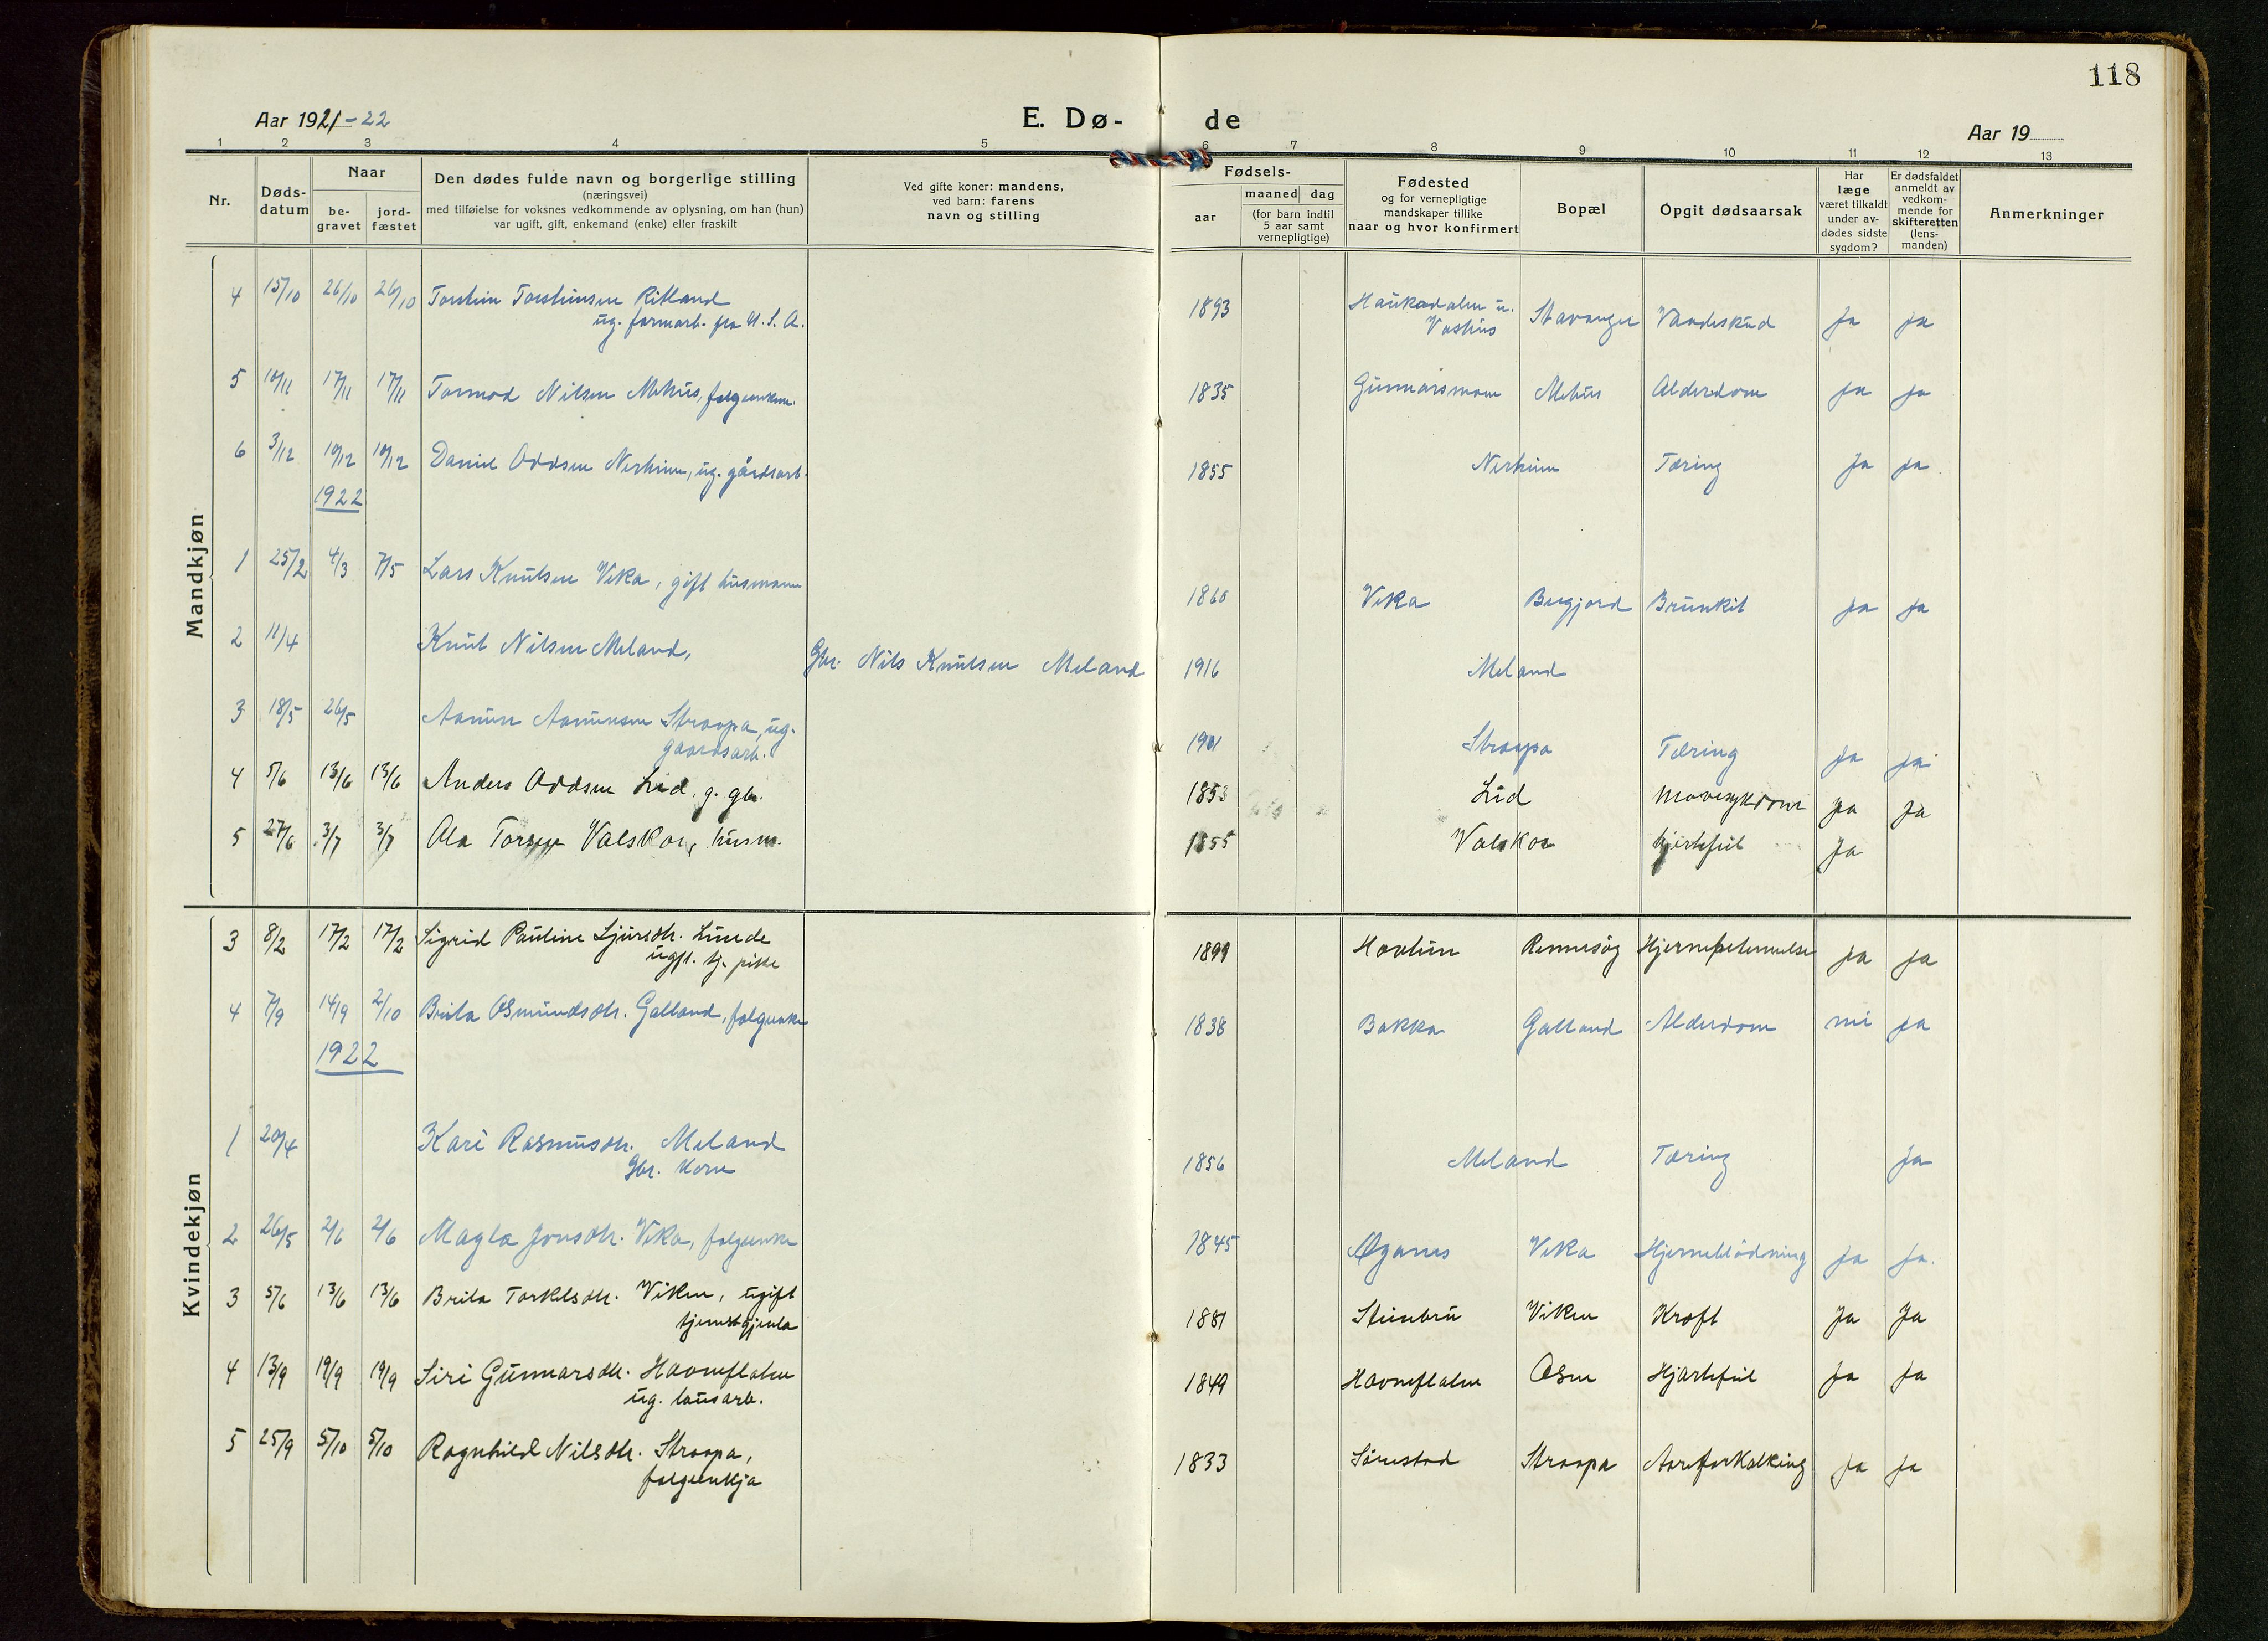 118
Aar 1921-22
E. Dø- de
Aar 19
1 2 3 4 5 6 7 8 9 10 11 12 13
Nr.
Døds-
datum
Naar
be-
gravet
jord-
fæstet
Den dødes fulde navn og borgerlige stilling
(næringsvei)
med tilføielse for voksnes vedkommende av oplysning, om han (hun)
var ugift, gift, enkemand (enke) eller fraskilt
Ved gifte koner: mandens,
ved barn: farens
navn og stilling
Fødsels-
aar
maaned dag
(for barn indtil
5 aar samt
vernepligtige)
Fødested
og for vernepligtige
mandskaper tillike
naar og hvor konfirmert
Bopæl
Opgit dødsaarsak
Har
læge
været tilkaldt
under av-
dødes sidste
sygdom?
Er dødsfaldet
anmeldt av
vedkom-
mende for
skifteretten
(lens-
manden)
Anmerkninger
Mandkjøn
4 15/10 26/10 26/10 Torstein Torsteinsen Ritland 1893 Haukadalen u. Stavanger Vaadeskud Ja ja
ug. farmarb. fra U. S. A. Vashus
5 10/11 17/11 17/11 Tormod Nilsen Mehus, folgeenkem. 1835 Gunnarsmoen Mehus Alderdom ja ja
6 3/12 10/12 10/12 Daniel Oddsen Nerheim, ug. gårdsarb. 1855 Nerheim Tæring Ja ja
1922
1 25/2 4/3 7/5 Lars Knutsen Veka, gift husmann 1860 Veka Bergjord Brunkit ja ja
2 11/4 Knut Nilsen Meland, Gbr. Nils Knutsen Meland 1916 Meland
3 18/5 26/5 Aamun Aamunsen Straapa, ug. 1901 Straapa Tæring ja ja
gaardsarb.
4 5/6 13/6 13/6 Anders Oddsen Lid, g. gbr. 1853 Lid Mavesykdom ja ja
5 27/6 3/7 3/7 Ola Torsen Valskar, husm. 1855 Valskar hjertefeil Ja
Kvindekjøn
3 8/2 17/2 17/2 Sigrid Pauline Sjursdtr. Lunde 1899 Havtun Rennesøy Hjernebetennelse ja ja
ugft. tj. pike
4 7/9 14/9 2/10 Brita Osmundsdtr. Galland, folgeenke 1838 Bakka Galland Alderdom nei ja
1922
1 20/4 Kari Rasmusdtr. Meland 1856 Meland Tæring Ja
Gbr. kone
2 26/5 2/6 2/6 Magla Jonsdtr. Veka, folgeenke 1845 Øganes Veka Hjerneblødning ja ja.
3 5/6 13/6 13/6 Brita Torkelsdtr. Viken, ugift 1881 Steinbru Viken Kræft Ja Ja
tjenestgjenta
4 13/9 19/9 19/9 Siri Gunnarsdtr. Havneflaten 1849 Havneflaten Osen Hjartefeil Ja Ja
ug. lausarb.
5 25/9 5/10 5/10 Ragnhild Nilsdtr. Straapa, 1833 Sørestad Straapa Aareforkalking ja ja
folgeenkja